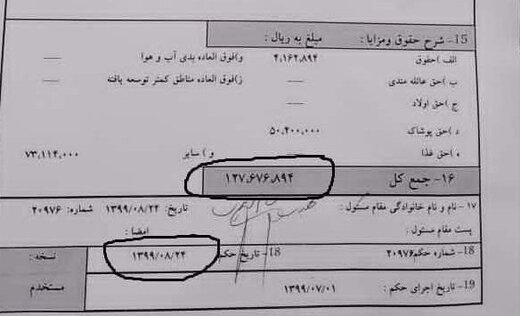 15- شرح حقوق ومزایا : مبلغ به ریال :
الف )حقوق ۴,۱۶۲,۸۹۴ و)فوق العاده بدی آب و هوا ——
ب )حق عائله مندی —— ز)فوق العاده مناطق کمتر توسعه یافته ——
ج )حق اولاد ——
د )حق پوشاک ۵۰,۴۰۰,۰۰۰
ه )حق غذا و ) سایر ۷۳,۱۱۴,۰۰۰
۱۶- جمع کل ۱۲۷,۶۷۶,۸۹۴
۱۷- نام و نام خانوادگی مقام مسئول : تاریخ: ۱۳۹۹/۰۸/۲۴ شماره: ۲۰۹۷۶
پست مقام مسئول : امضا :
18- شماره حکم۲۰۹۷۶ 18- تاریخ حکم ۱۳۹۹/۰۸/۲۴ نسخه :
19- تاریخ اجرای حکم : ۱۳۹۹/۰۷/۰۱ مستخدم